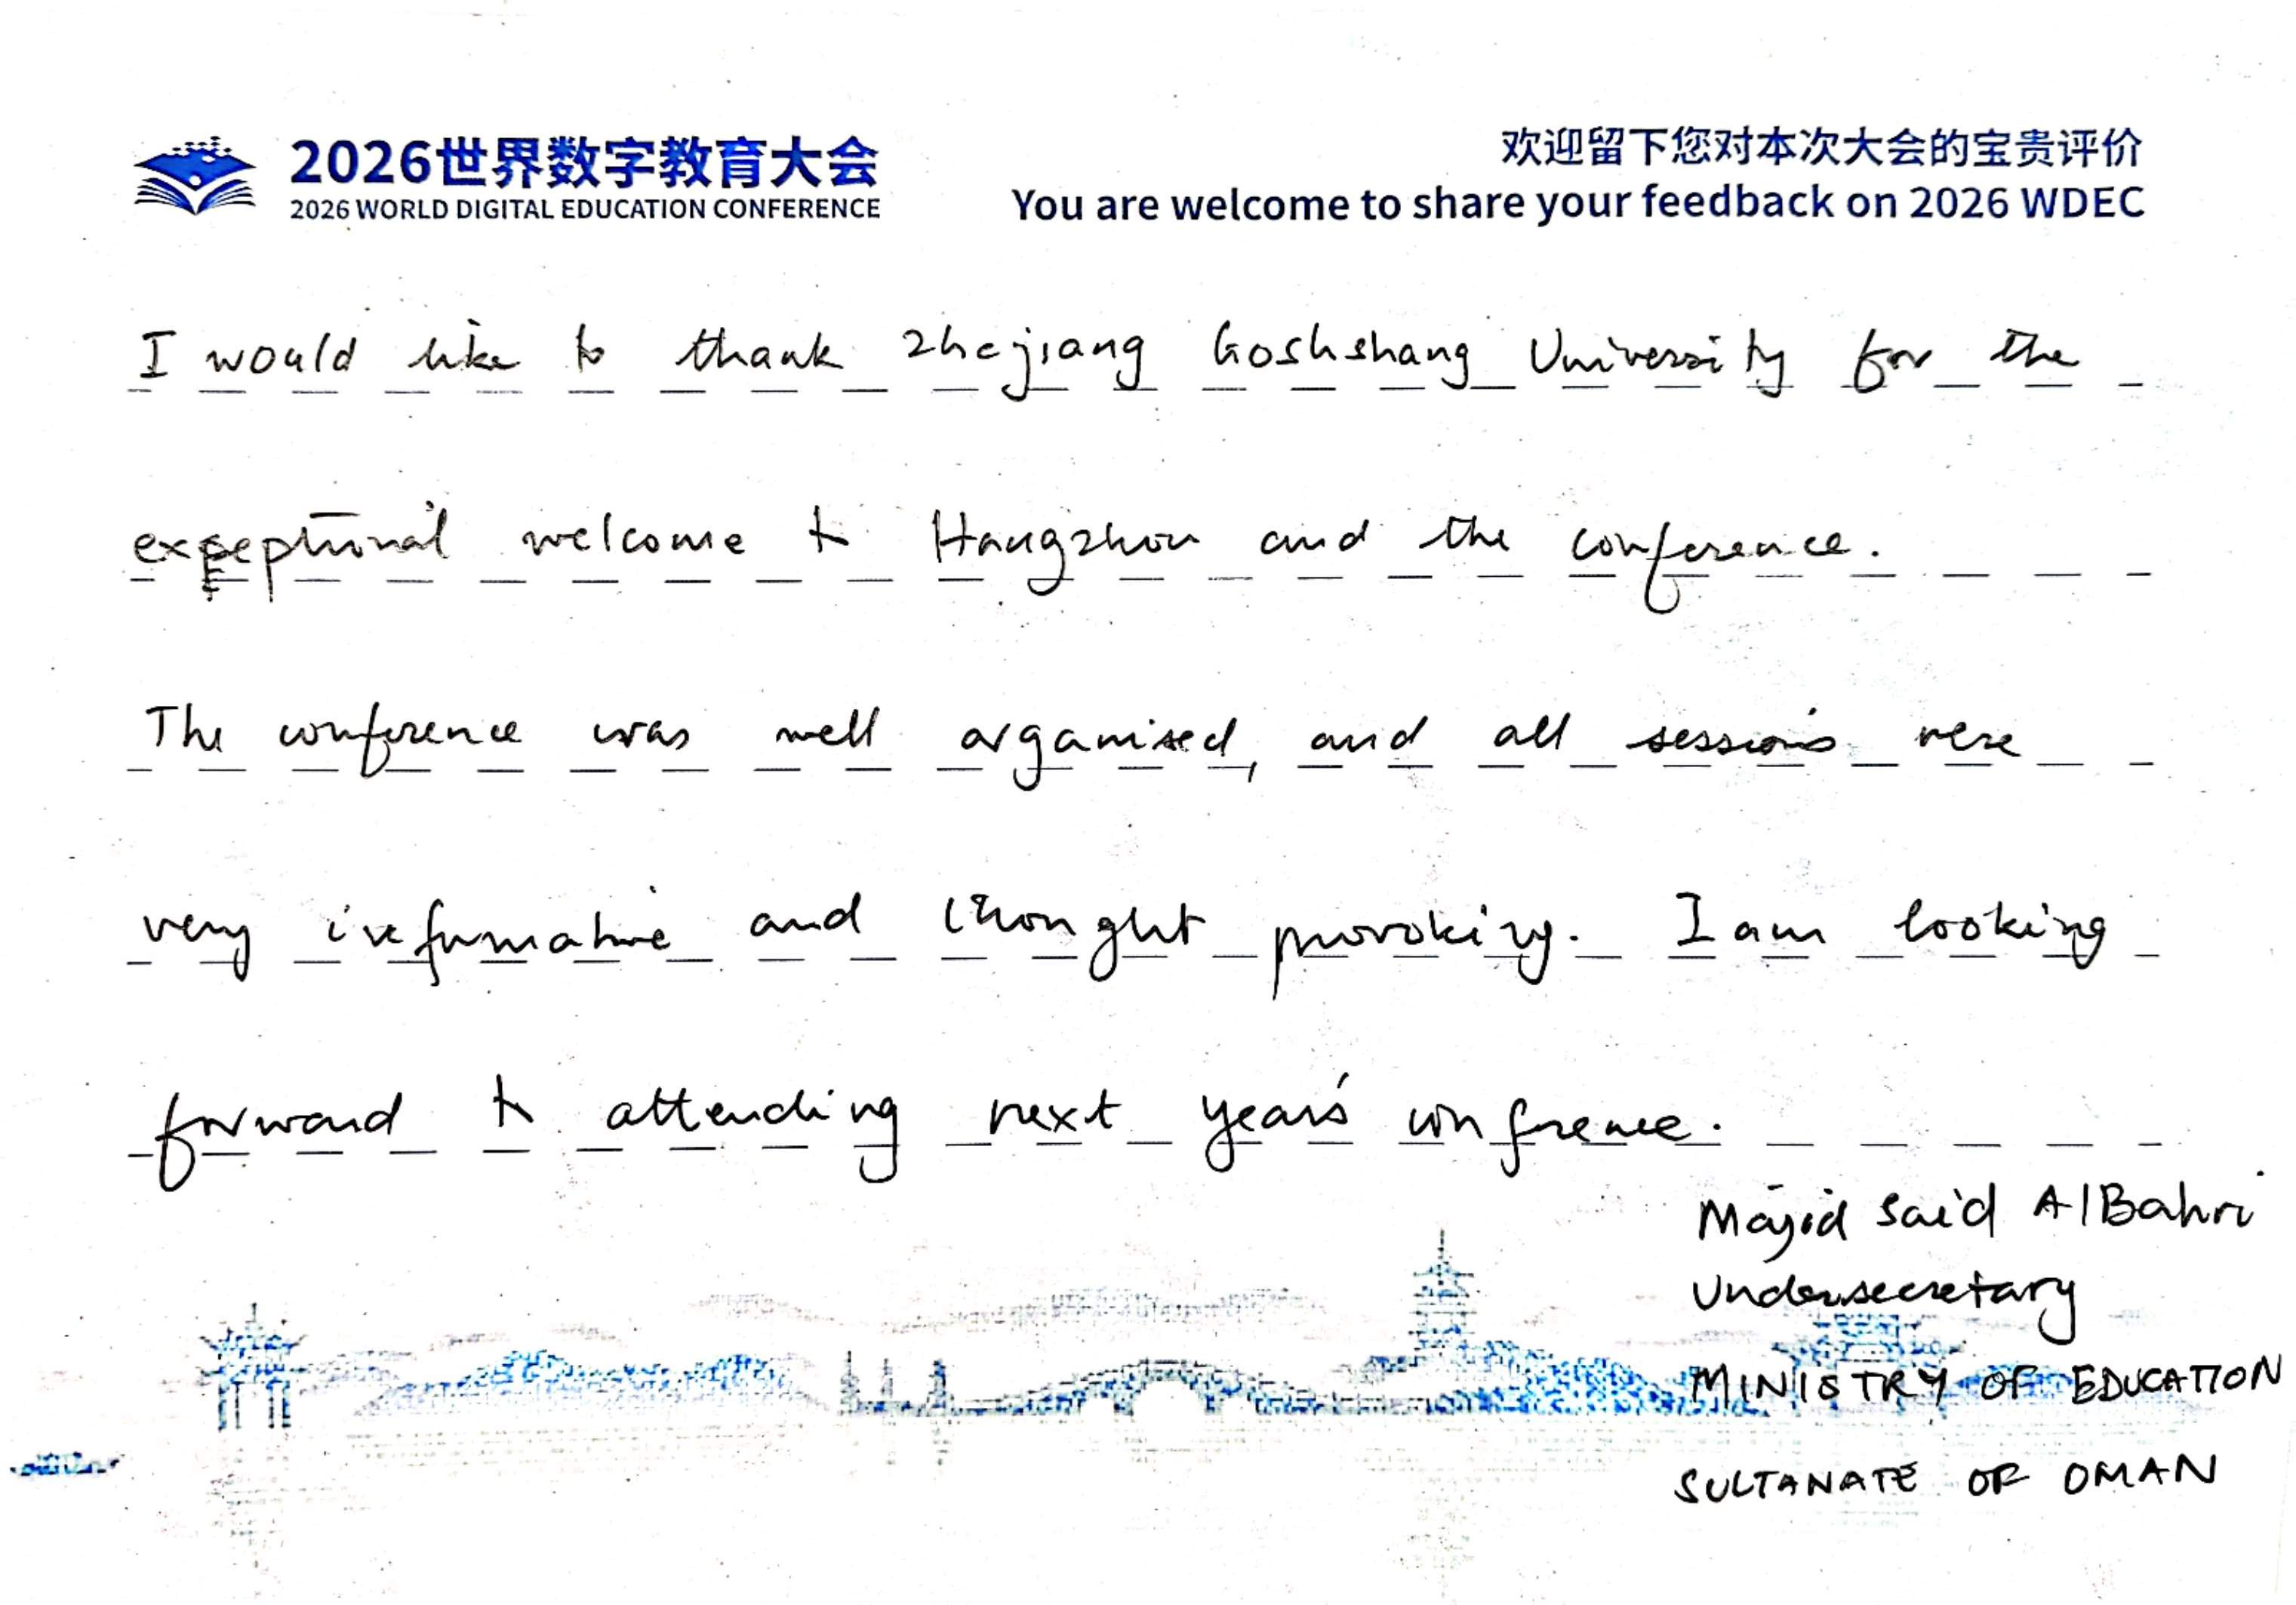 2026世界数字教育大会
2026 WORLD DIGITAL EDUCATION CONFERENCE
欢迎留下您对本次大会的宝贵评价
You are welcome to share your feedback on 2026 WDEC
I would like to thank Zhejiang Goshshang University for the
exceptional welcome to Hangzhou and the conference.
The conference was well organised, and all sessions were
very informative and thought provoking. I am looking
forward to attending next year's conference.
Majid Said AlBahri
Undersecretary
MINISTRY OF EDUCATION
SULTANATE OF OMAN